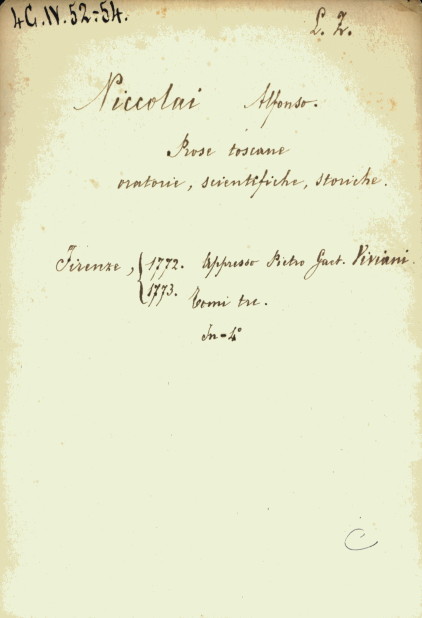 4G.IV.52-54. L. Z.
Niccolai Alfonso.
Prose toscane
oratorie, scientifiche, storiche.
Firenze, { 1772. Appresso Pietro Gaet. Viviani.
1773. Tomi tre.
In-4°
C